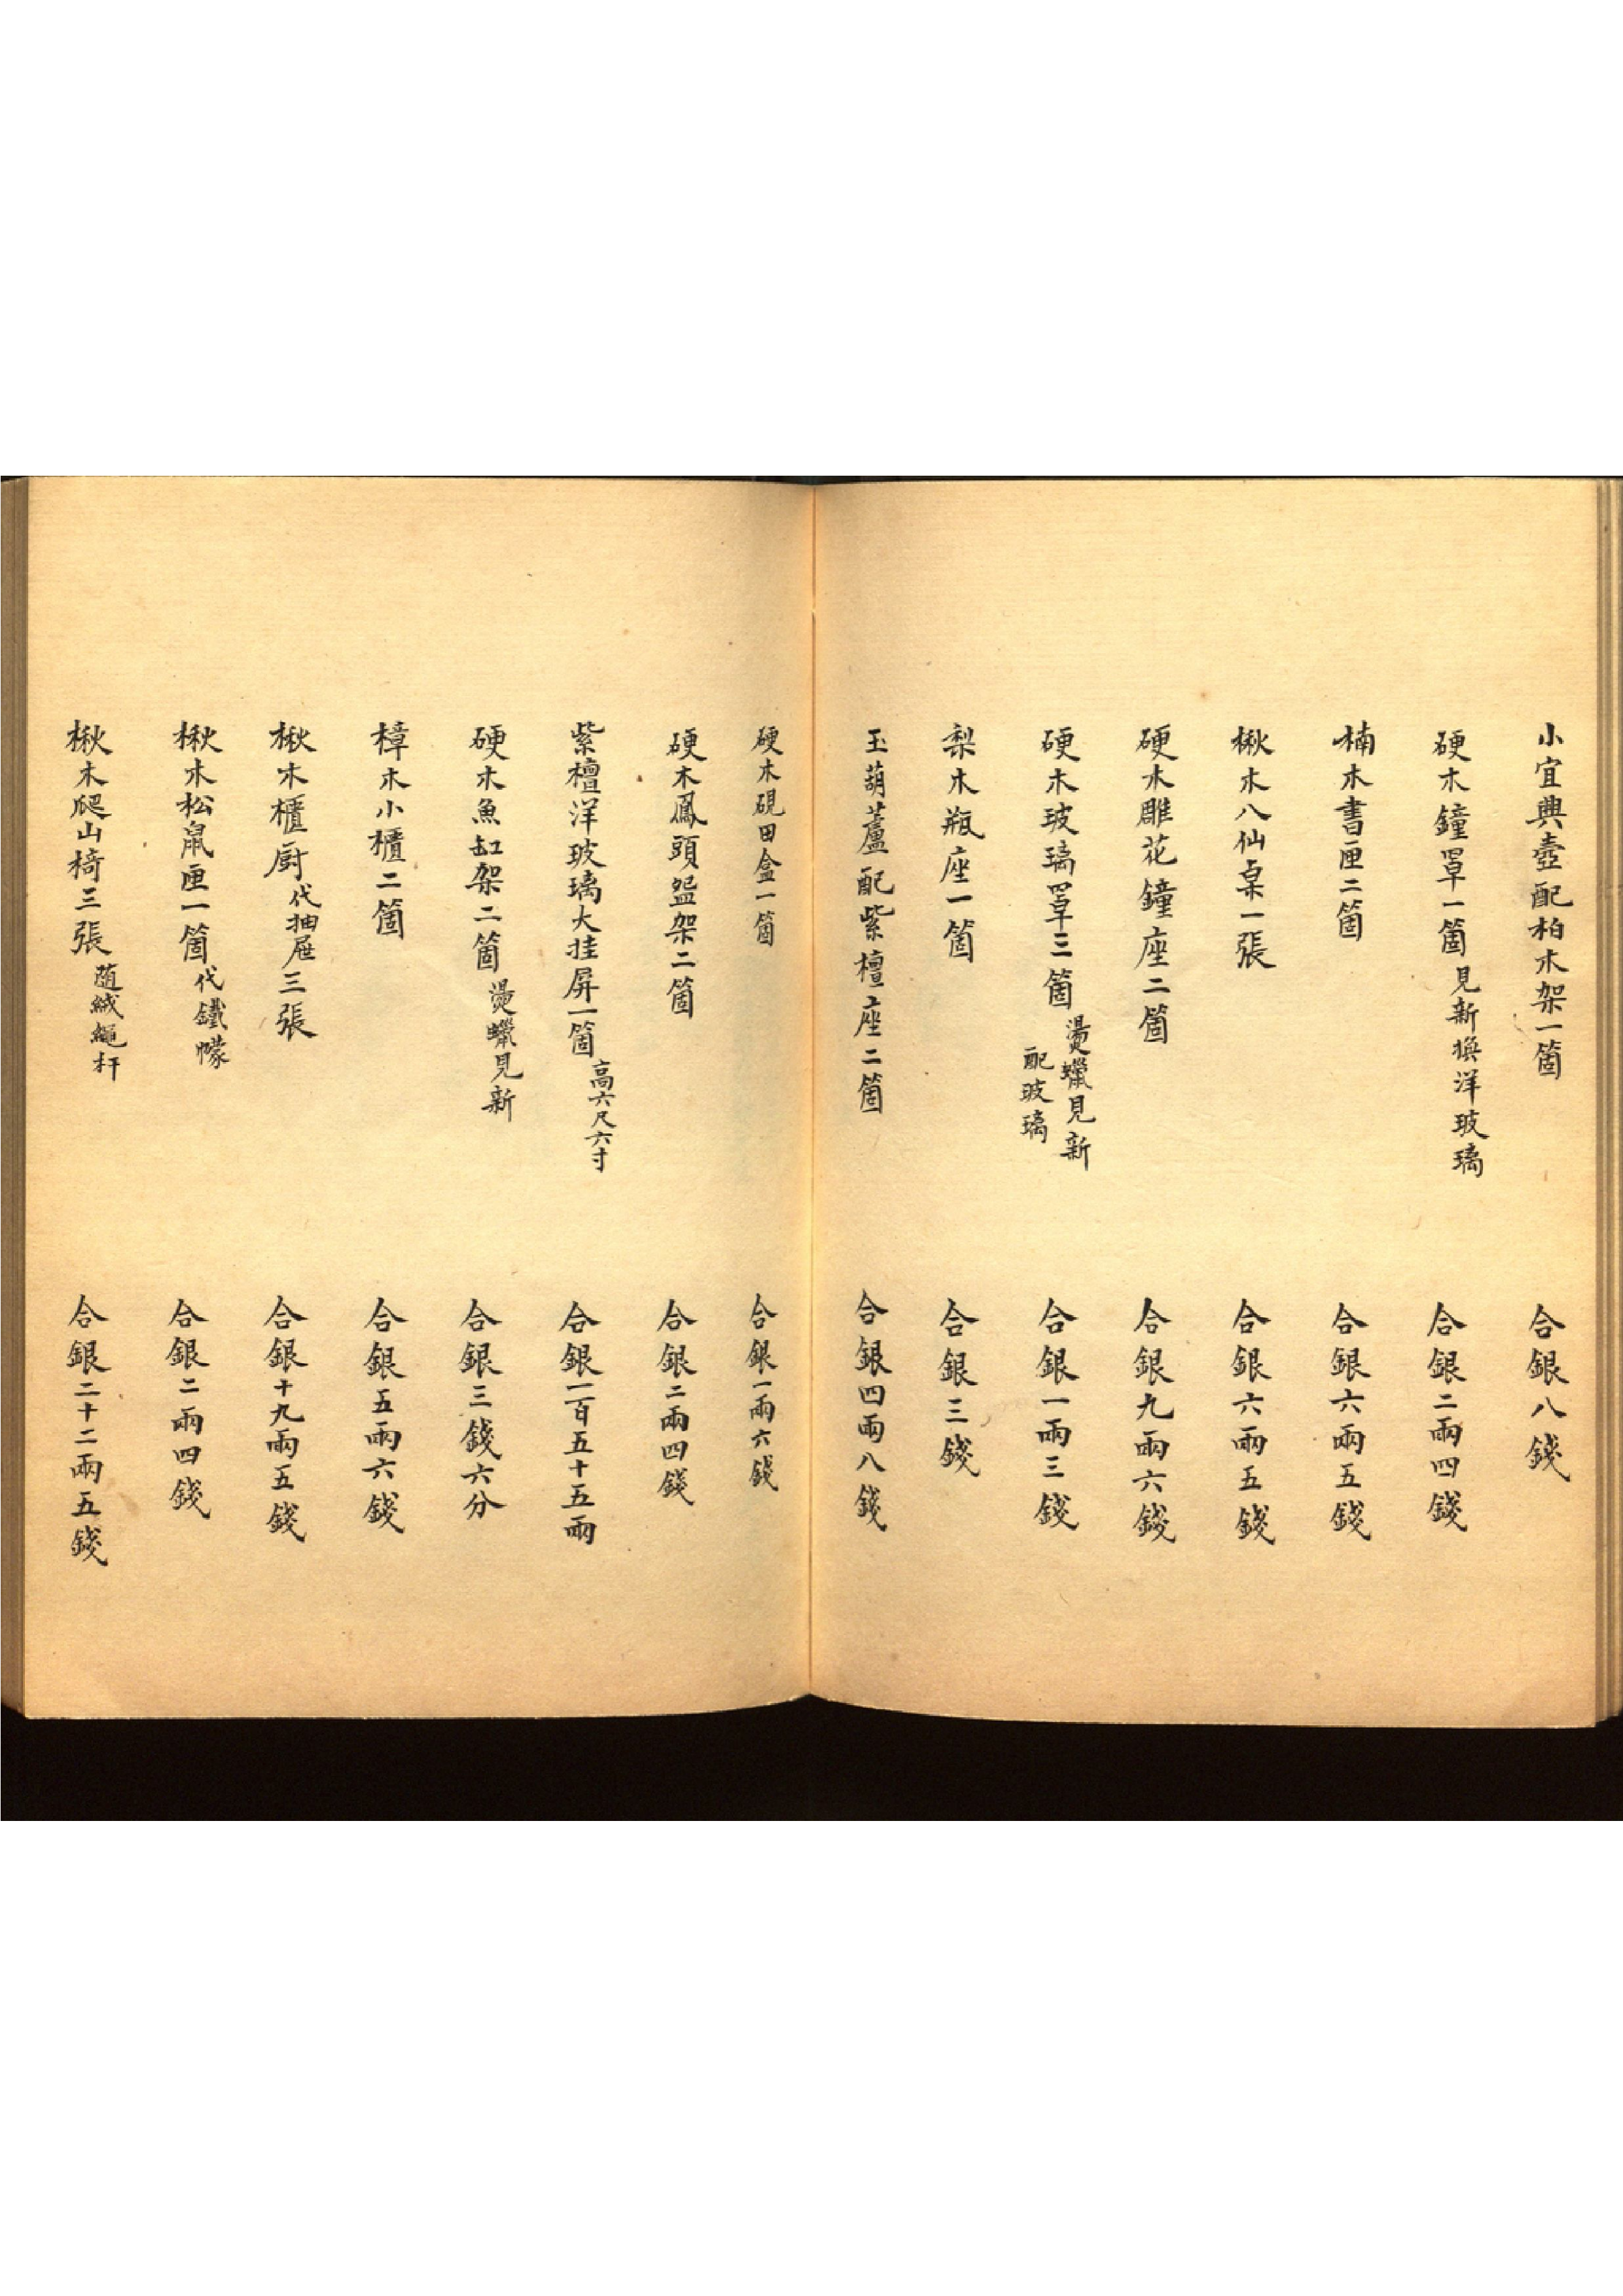 小宜興壺配柏木架一箇 合銀八錢
硬木鐘罩一箇見新換洋玻璃 合銀二兩四錢
楠木書匣二箇 合銀六兩五錢
楸木八仙桌一張 合銀六兩五錢
硬木雕花鐘座二箇 合銀九兩六錢
硬木玻璃罩三箇燙蠟見新配玻璃 合銀一兩三錢
梨木瓶座一箇 合銀三錢
玉葫蘆配紫檀座二箇 合銀四兩八錢
硬木硯田盒一箇 合銀一兩六錢
硬木鳳頭盌架二箇 合銀二兩四錢
紫檀洋玻璃大挂屏一箇高六尺六寸 合銀一百五十五兩
硬木魚缸架二箇燙蠟見新 合銀三錢六分
樟木小櫃二箇 合銀五兩六錢
楸木櫃廚代抽屜三張 合銀十九兩五錢
楸木松鼠匣一箇代鐵幪 合銀二兩四錢
楸木爬山椅三張隨絨繩杆 合銀二十二兩五錢